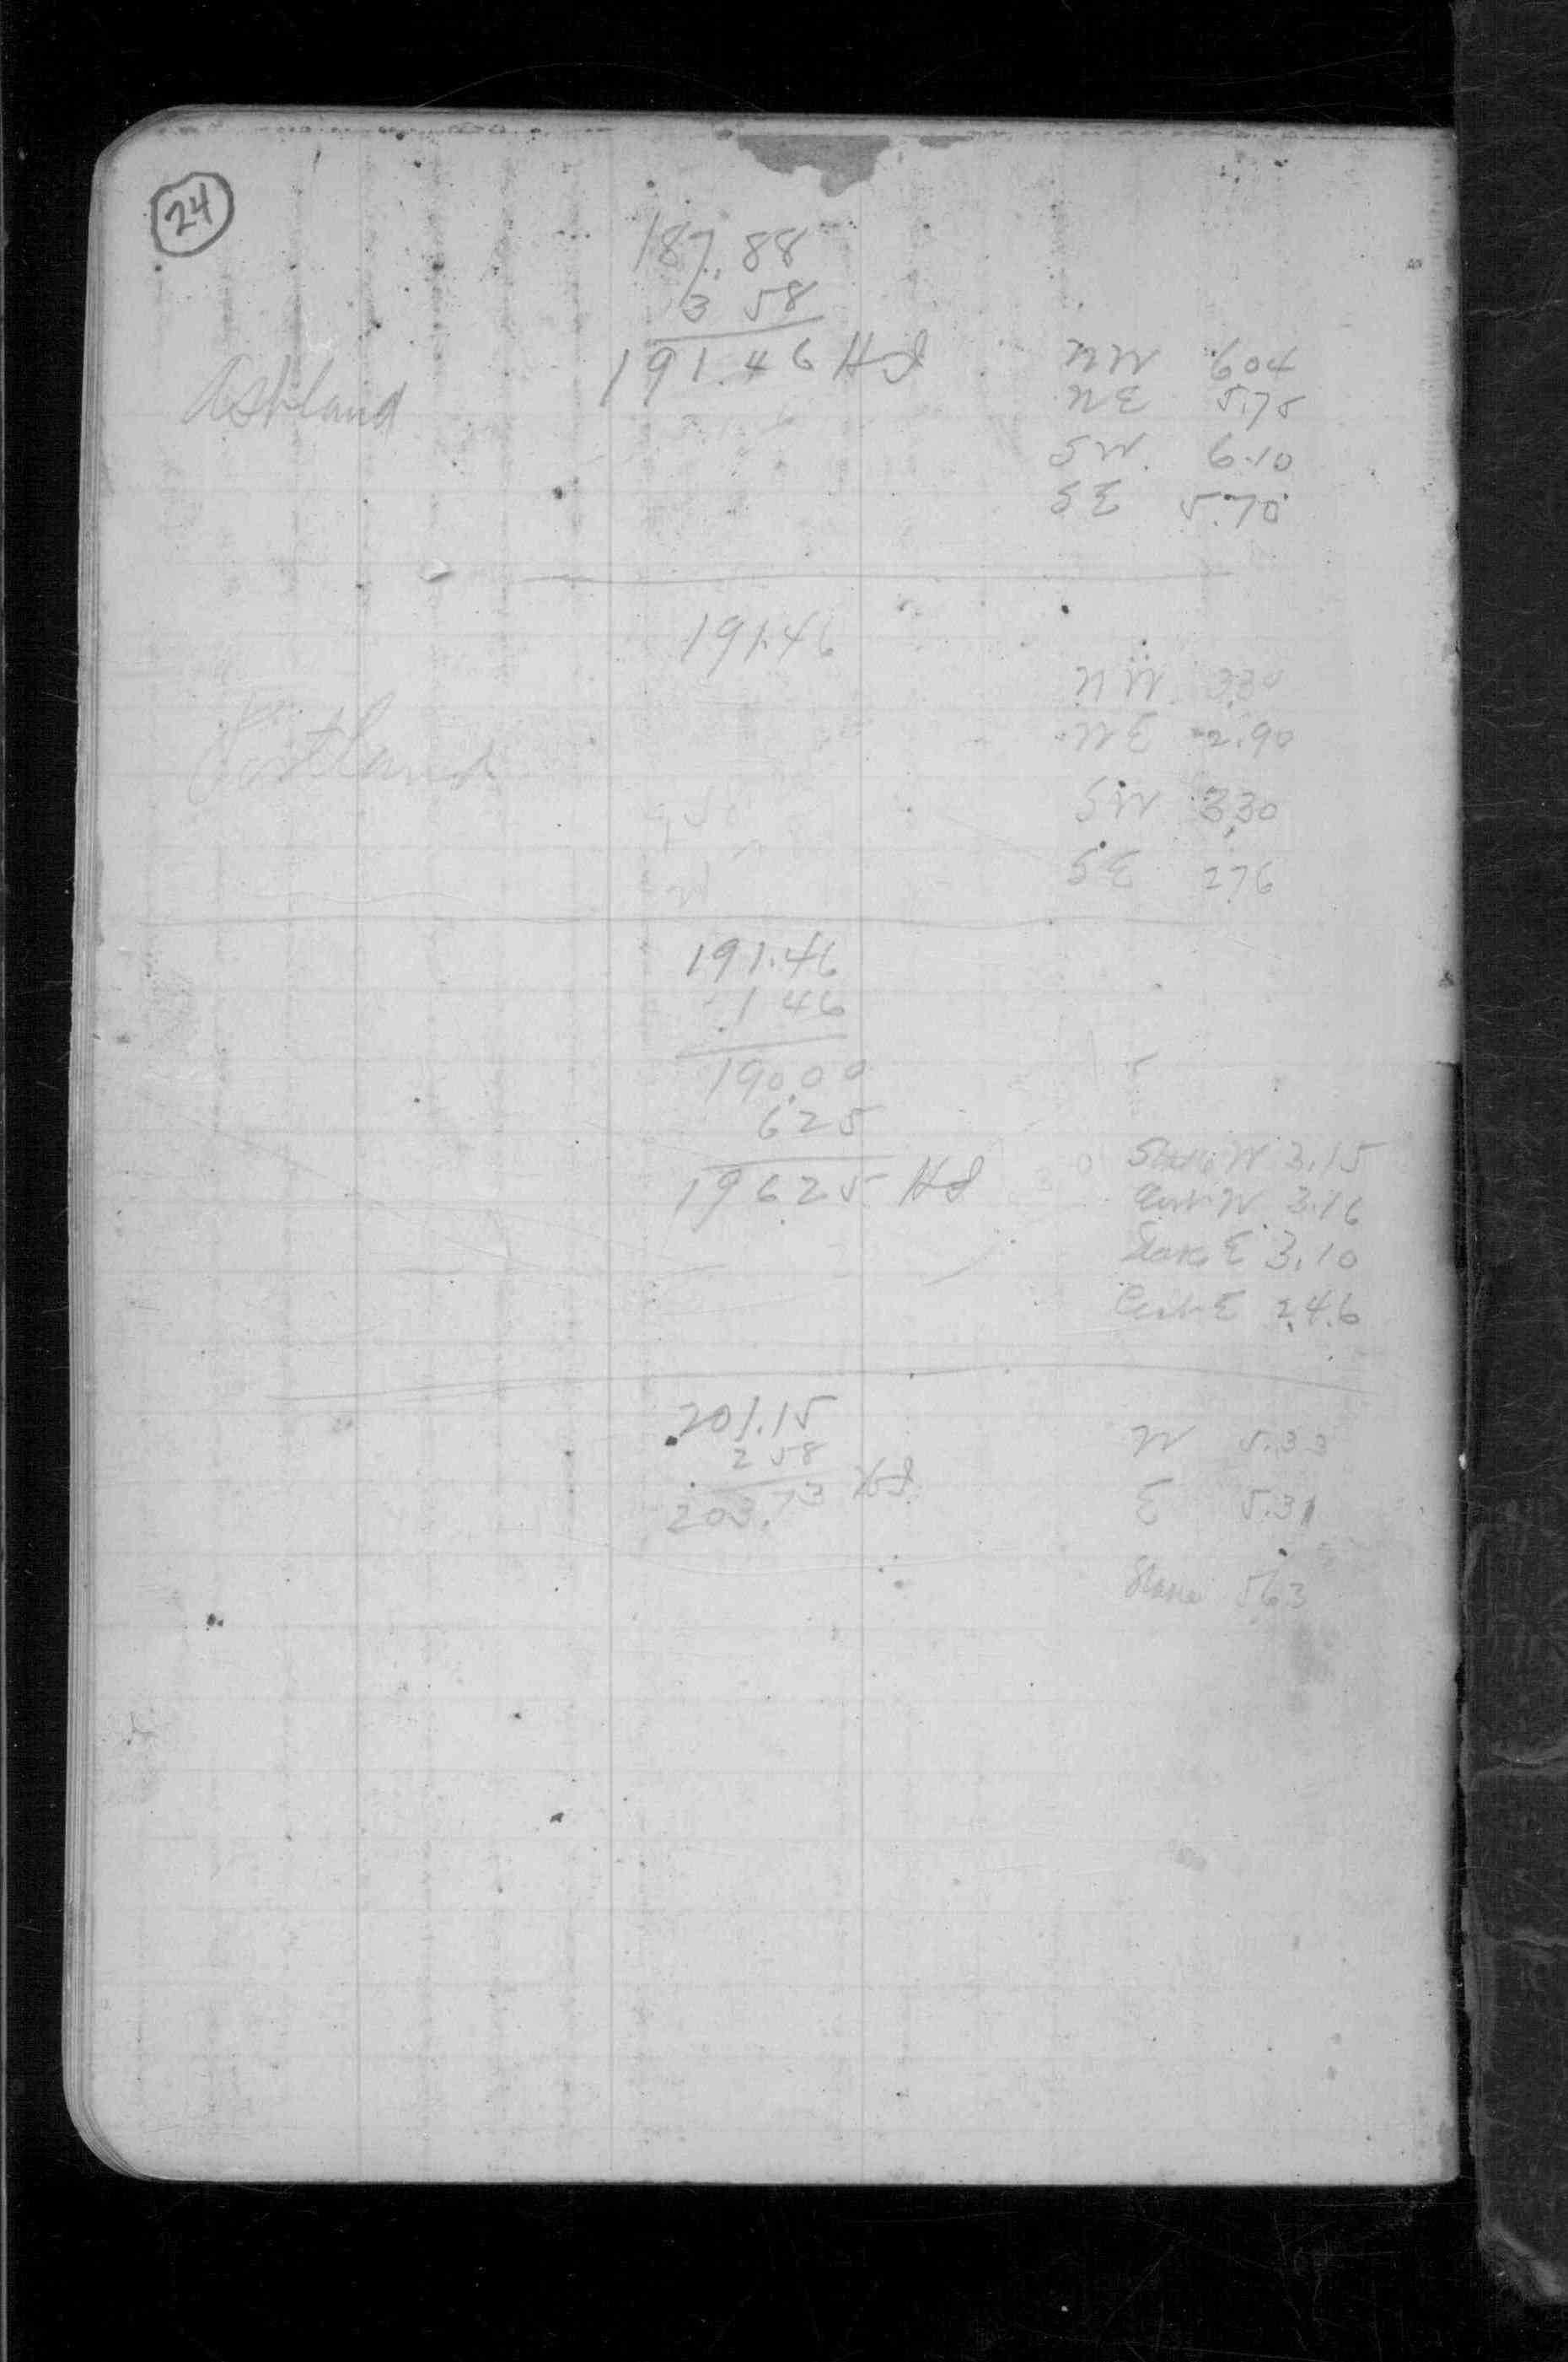 24
187.88
3 58
191.46 HI
Ashland
NW 604
NE 5.75
SW. 6.10
SE 5.70
191.46
Portland
NW 3.30
NE 2.90
SW 3.30
SE 276
191.46
1 46
190.00
625
19625 HI
Stake W 3.15
Curb W 3.16
Stake E 3.10
Curb E 2.46
201.15
2 58
203.73 HI
W 5.33
E 5.31
Stake 563